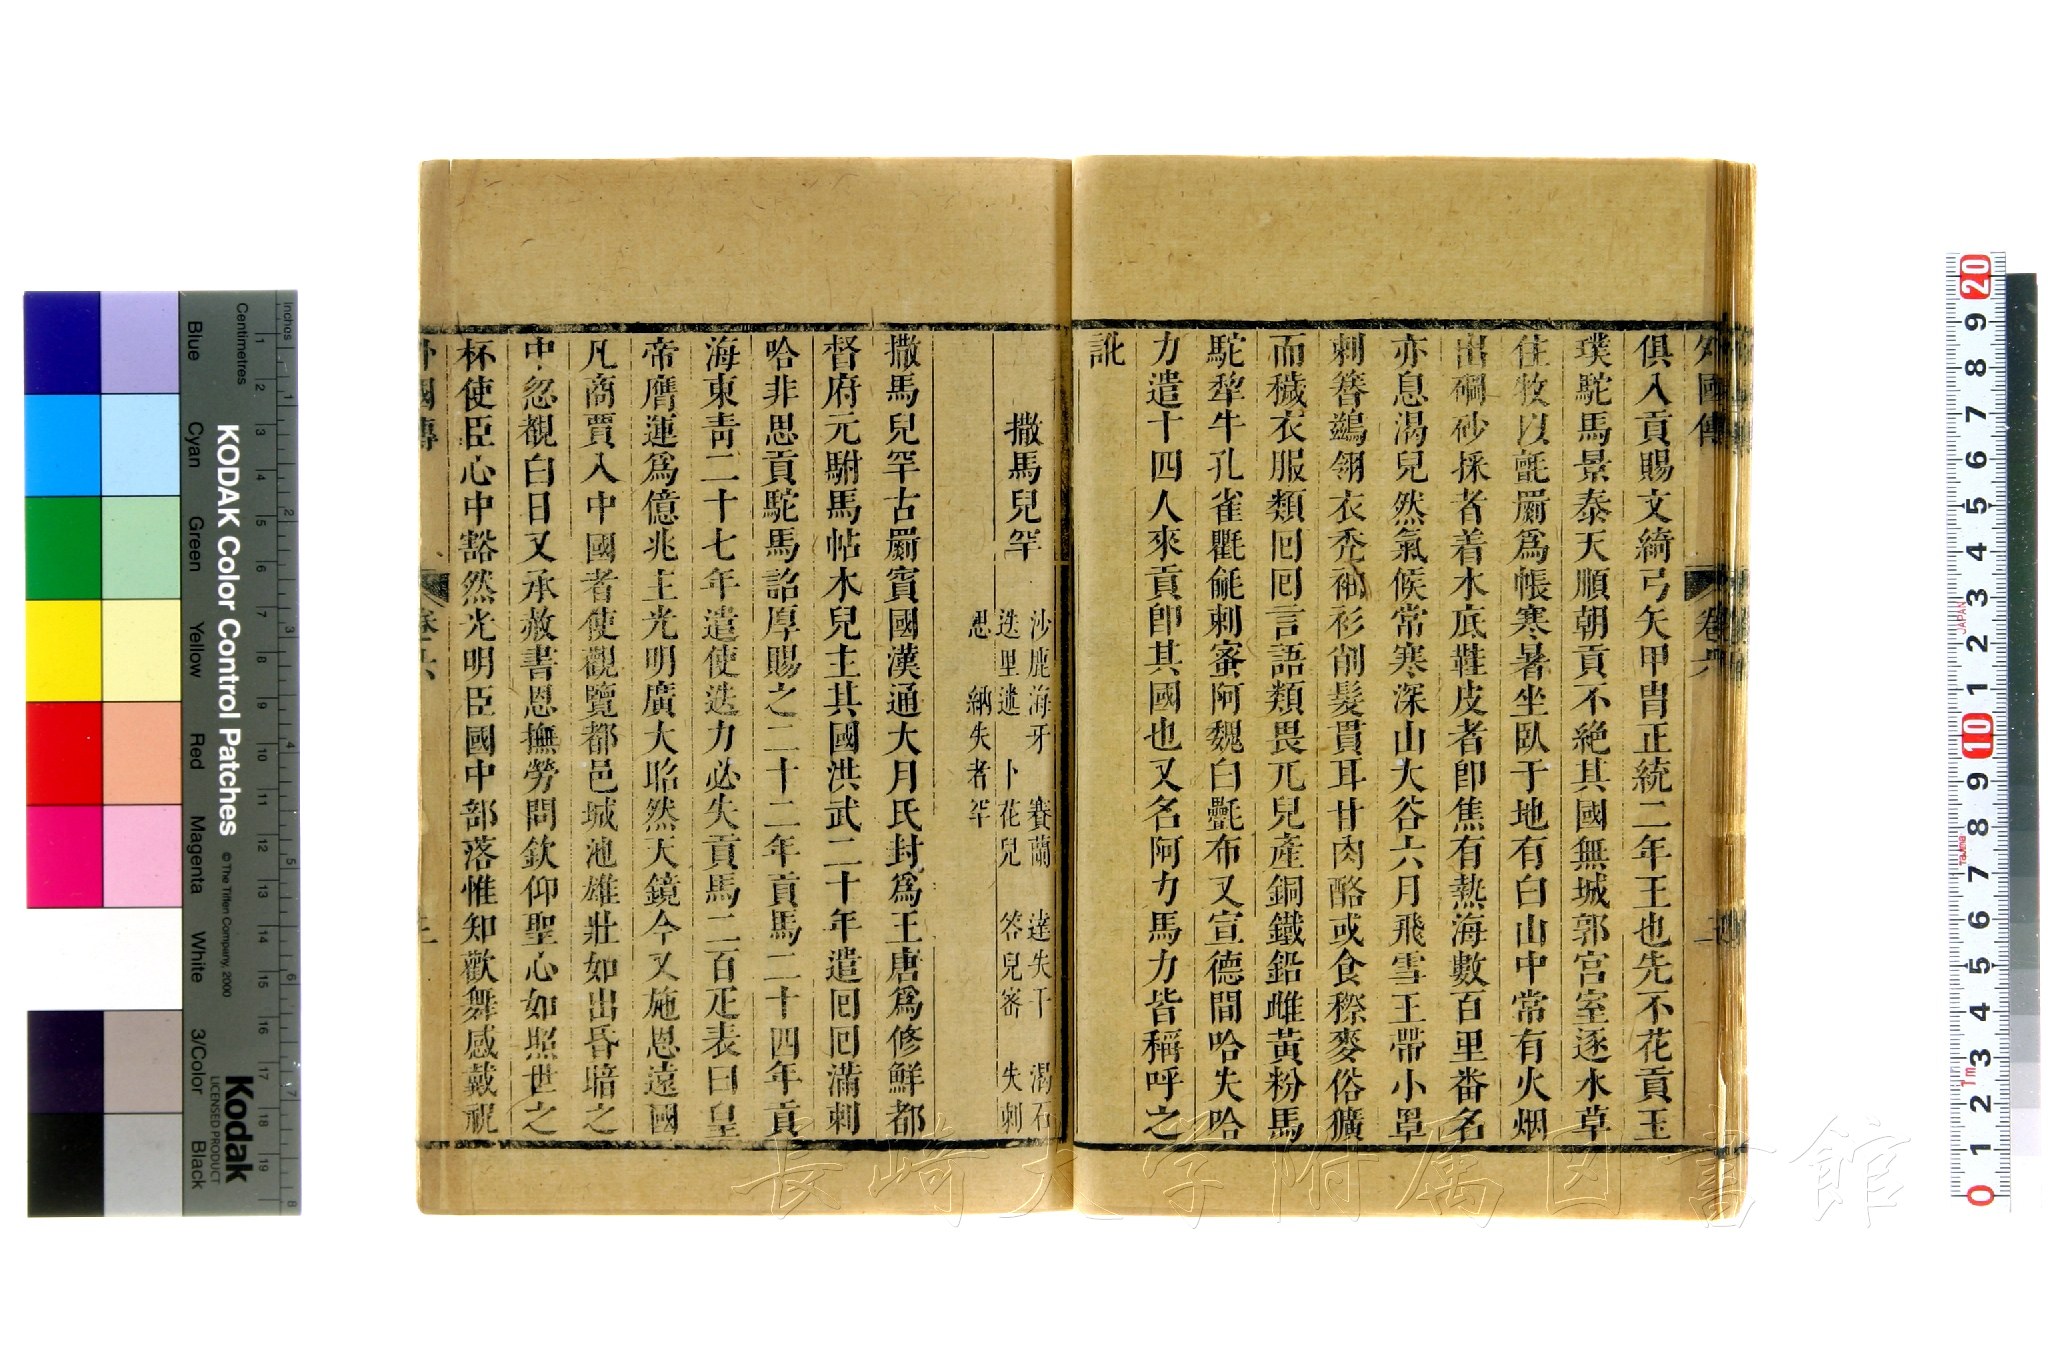 外國傳 卷六
俱入貢賜文綺弓矢甲胄正統二年王也先不花貢玉
璞駝馬景泰天順朝貢不絶其國無城郭宮室逐水草
住牧以氈罽爲帳寒暑坐臥于地有白山中常有火烟
出硇砂採者着木底鞋皮者卽焦有熱海數百里畨名
亦息渴兒然氣候常寒深山大谷六月飛雪王帶小罩
剌簪鷀翎衣禿袖衫削髮貫耳甘肉酪或食穄麥俗獷
而穢衣服類囘囘言語類畏兀兒產銅鐵鉛雌黃粉馬
駝犂牛孔雀氍毹剌蜜阿魏白㲲布又宣德間哈失哈
力遣十四人來貢卽其國也又名阿力馬力皆稱呼之
訛
撒馬兒罕
沙鹿海牙 賽蘭 達失干 渴石
迭里迷 卜花兒 答兒密 失剌
思 納失者罕
撒馬兒罕古罽賓國漢通大月氏封爲王唐爲修鮮都
督府元駙馬帖木兒主其國洪武二十年遣囘囘滿剌
哈非思貢駝馬詔厚賜之二十二年貢馬二十四年貢
海東靑二十七年遣使迭力必失貢馬二百疋表曰皇
帝膺運爲億兆主光明廣大昭然天鏡今又施恩遠國
凡商賈入中國者使觀覽都邑城池雄壯如出昏暗之
中忽覩白日又承赦書恩撫勞問欽仰聖心如照世之
杯使臣心中豁然光明臣國中部落惟知歡舞感戴祝
外國傳 卷六
長崎大学附属図書館
KODAK Color Control Patches
© The Tiffen Company, 2000
Kodak
LICENSED PRODUCT
Inches
Centimetres
Blue
Cyan
Green
Yellow
Red
Magenta
White
3/Color
Black
JAPAN